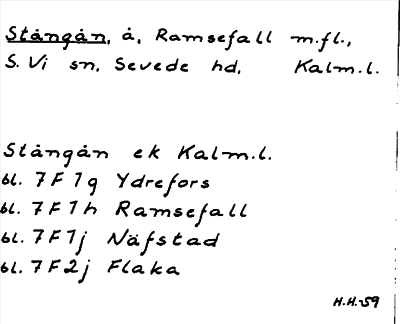 Stångån, å, Ramsefall m.fl.,
S. Vi sn, Sevede hd, Kalm.l.
Stångån ek Kalm.l.
bl. 7F1g Ydrefors
bl. 7F1h Ramsefall
bl. 7F1j Näfstad
bl. 7F2j Flaka
H.H.-59